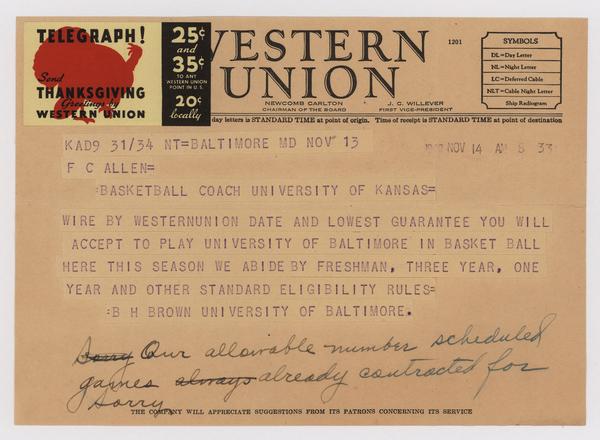 TELEGRAPH!
Send
THANKSGIVING
Greetings by
WESTERN UNION
25¢
and
35¢
TO ANY
WESTERN UNION
POINT IN U.S.
20¢
locally
WESTERN
UNION
NEWCOMB CARLTON
CHAIRMAN OF THE BOARD
J. C. WILLEVER
FIRST VICE-PRESIDENT
1201
SYMBOLS
DL=Day Letter
NL=Night Letter
LC=Deferred Cable
NLT=Cable Night Letter
Ship Radiogram
day letters is STANDARD TIME at point of origin. Time of receipt is STANDARD TIME at point of destination
KAD9 31/34 NT=BALTIMORE MD NOV 13
NOV 14 AM 8 33
F C ALLEN=
:BASKETBALL COACH UNIVERSITY OF KANSAS=
WIRE BY WESTERNUNION DATE AND LOWEST GUARANTEE YOU WILL
ACCEPT TO PLAY UNIVERSITY OF BALTIMORE IN BASKET BALL
HERE THIS SEASON WE ABIDE BY FRESHMAN, THREE YEAR, ONE
YEAR AND OTHER STANDARD ELIGIBILITY RULES=
:B H BROWN UNIVERSITY OF BALTIMORE.
Sorry Our allowable number scheduled
games always already contracted for
Sorry
THE COMPANY WILL APPRECIATE SUGGESTIONS FROM ITS PATRONS CONCERNING ITS SERVICE